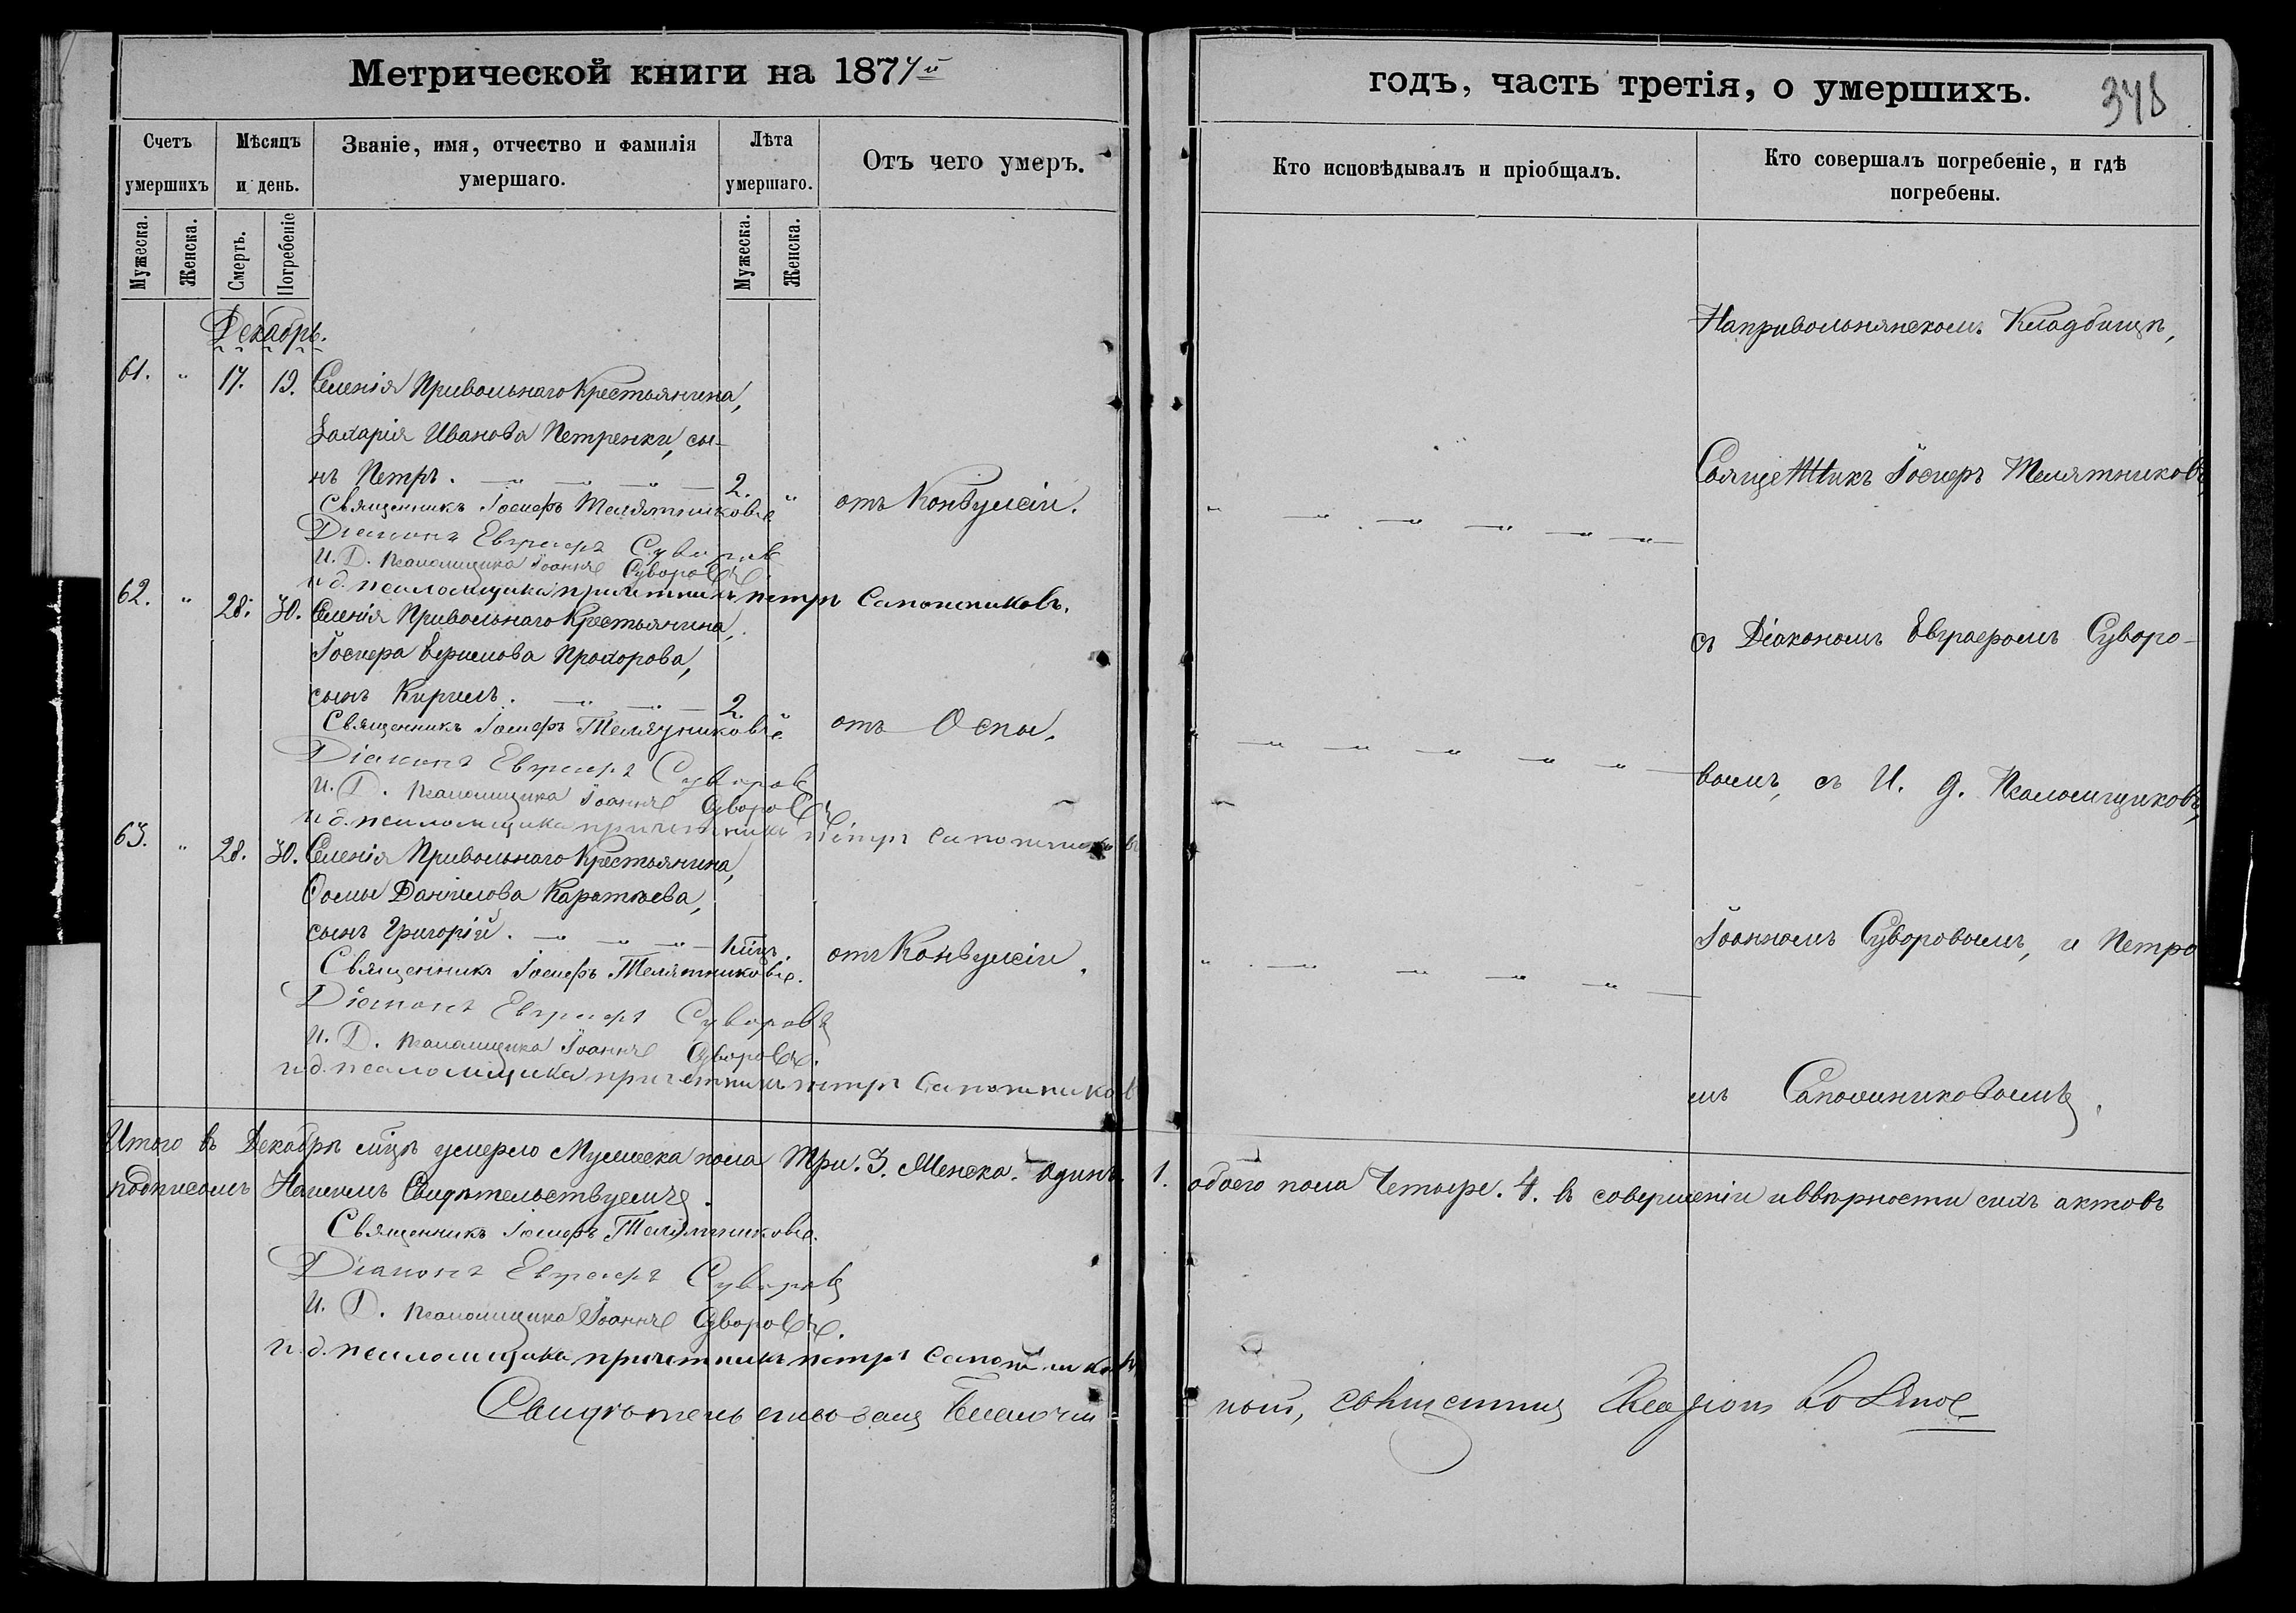 Метрической книги на 1874й
Счетъ умершихъ
Мѣсяцъ и день.
Званіе, имя, отчество и фамилія умершаго.
Лѣта умершаго.
Отъ чего умеръ.
Мужеска.
Женска.
Смерть.
Погребеніе
Мужеска.
Женска.
Декабрь.
61. " 17. 19. Селенія Привольнаго Крестьянина,
Захарія Иванова Петренки, сы-
нъ Петръ. 2. " отъ Конвулсіи.
Священникъ Іосифъ Телятниковъ
Діаконъ Евграфъ Суворовъ
И. Д. Псаломщика Іоаннъ Суворовъ.
и д. псаломщика причетникъ петръ Сапожниковъ.
62. " 28. 30. Селенія Привольнаго Крестьянина,
Іосифа Ефимова Прохорова,
сынъ Кирилъ. 2 " отъ Оспы.
Священникъ Іосифъ Телятниковъ.
Діаконъ Евграфъ Суворовъ
И. Д. Псаломщика Іоаннъ Суворовъ
и д. псаломщика причетникъ петръ сапожниковъ
63. " 28. 30. Селенія Привольнаго Крестьянина,
Ѳомы Данійлова
сынъ Григорій. отъ Конвулсіи.
Священникъ Іосифъ Телятниковъ.
Діаконъ Евграфъ Суворовъ
И. Д. Псаломщика Іоаннъ Суворовъ.
и д. псаломщика причетникъ петръ Сапожниковъ
Итого въ Декабрѣ мцѣ умерло Мужеска пола Три. 3. Женска. Одинъ
подписомъ Нашимъ Свидѣтельствуемъ.
Священникъ Іосифъ Телятниковъ.
Діаконъ Евграфъ Суворовъ
И. Д. Псаломщика Іоаннъ Суворовъ.
и. д. псаломщика причетникъ петръ Сапожниковъ
Свидѣтельствовалъ
годъ, часть третія, о умершихъ.
348
Кто исповѣдывалъ и пріобщалъ.
Кто совершалъ погребеніе, и гдѣ погребены.
На привольнянскомъ Кладбищѣ,
Священникъ Іосифъ Телятниковъ,
съ Діакономъ Евграфомъ Суворо-
вымъ, съ И. д. Псаломщиковъ,
Іоанномъ Суворовымъ, и Петро
мъ Сапожниковымъ.
1. обоего пола Четыре. 4. въ совершеніи и вѣрности сихъ актовъ